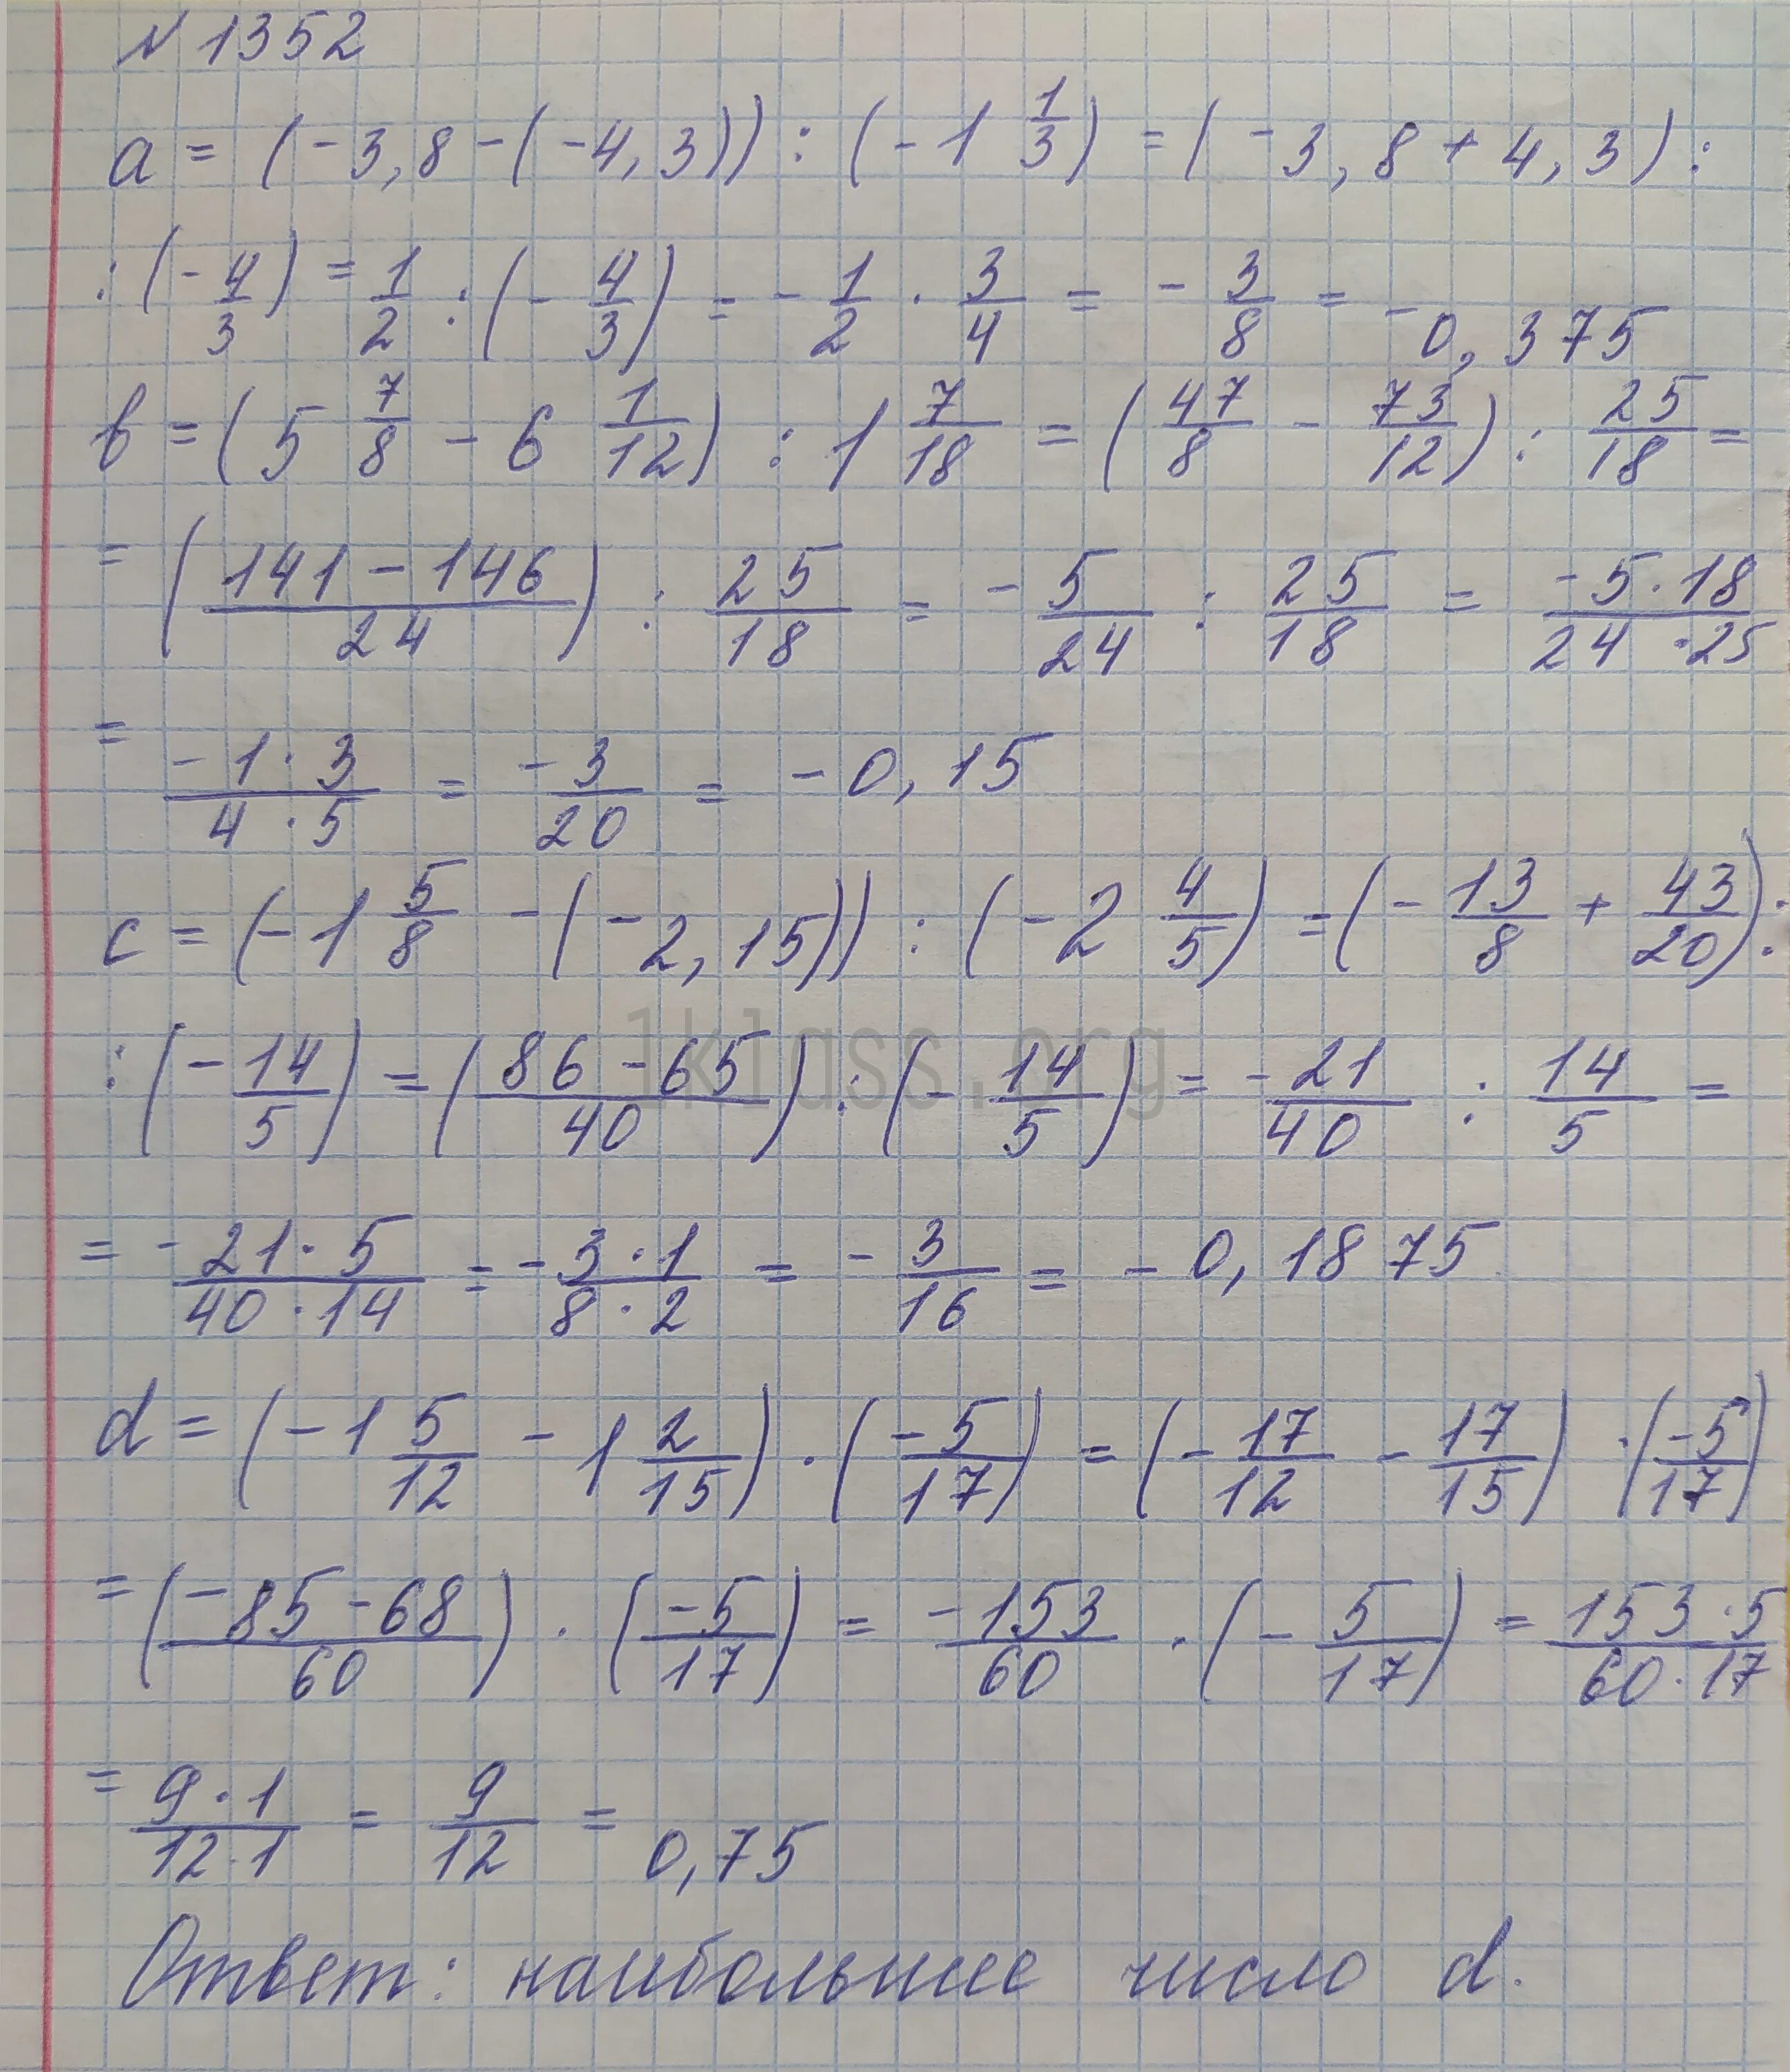 N 1352
a = (-3,8 - (-4,3)) : (-1 1/3) = (-3,8 + 4,3) :
: (-4/3) = 1/2 : (-4/3) = -1/2 · 3/4 = -3/8 = -0,375
b = (5 7/8 - 6 1/12) : 1 7/18 = (47/8 - 73/12) : 25/18 =
= ((141 - 146)/24) : 25/18 = -5/24 : 25/18 = (-5 · 18)/(24 · 25)
= (-1 · 3)/(4 · 5) = -3/20 = -0,15
c = (-1 5/8 - (-2,15)) : (-2 4/5) = (-13/8 + 43/20) :
1klass.org
: (-14/5) = ((86 - 65)/40) : (-14/5) = -21/40 : 14/5 =
= -(21 · 5)/(40 · 14) = -(3 · 1)/(8 · 2) = -3/16 = -0,1875
d = (-1 5/12 - 1 2/15) · (-5/17) = (-17/12 - 17/15) · (-5/17)
= ((-85 - 68)/60) · (-5/17) = -153/60 · (-5/17) = (153 · 5)/(60 · 17)
= (9 · 1)/(12 · 1) = 9/12 = 0,75
Ответ: наибольшее число d.